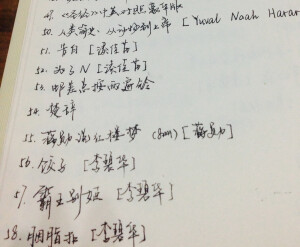 50. 人类简史:从动物到上帝 [Yuval Noah Harar
51. 告白 [湊佳苗]
52. 为了N [湊佳苗]
53. 邮差总按两遍铃
54. 楚辞
55. 蒋勋说红楼梦 [蒋勋]
56. 饺子 [李碧华]
57. 霸王别姬 [李碧华]
58. 胭脂扣 [李碧华]